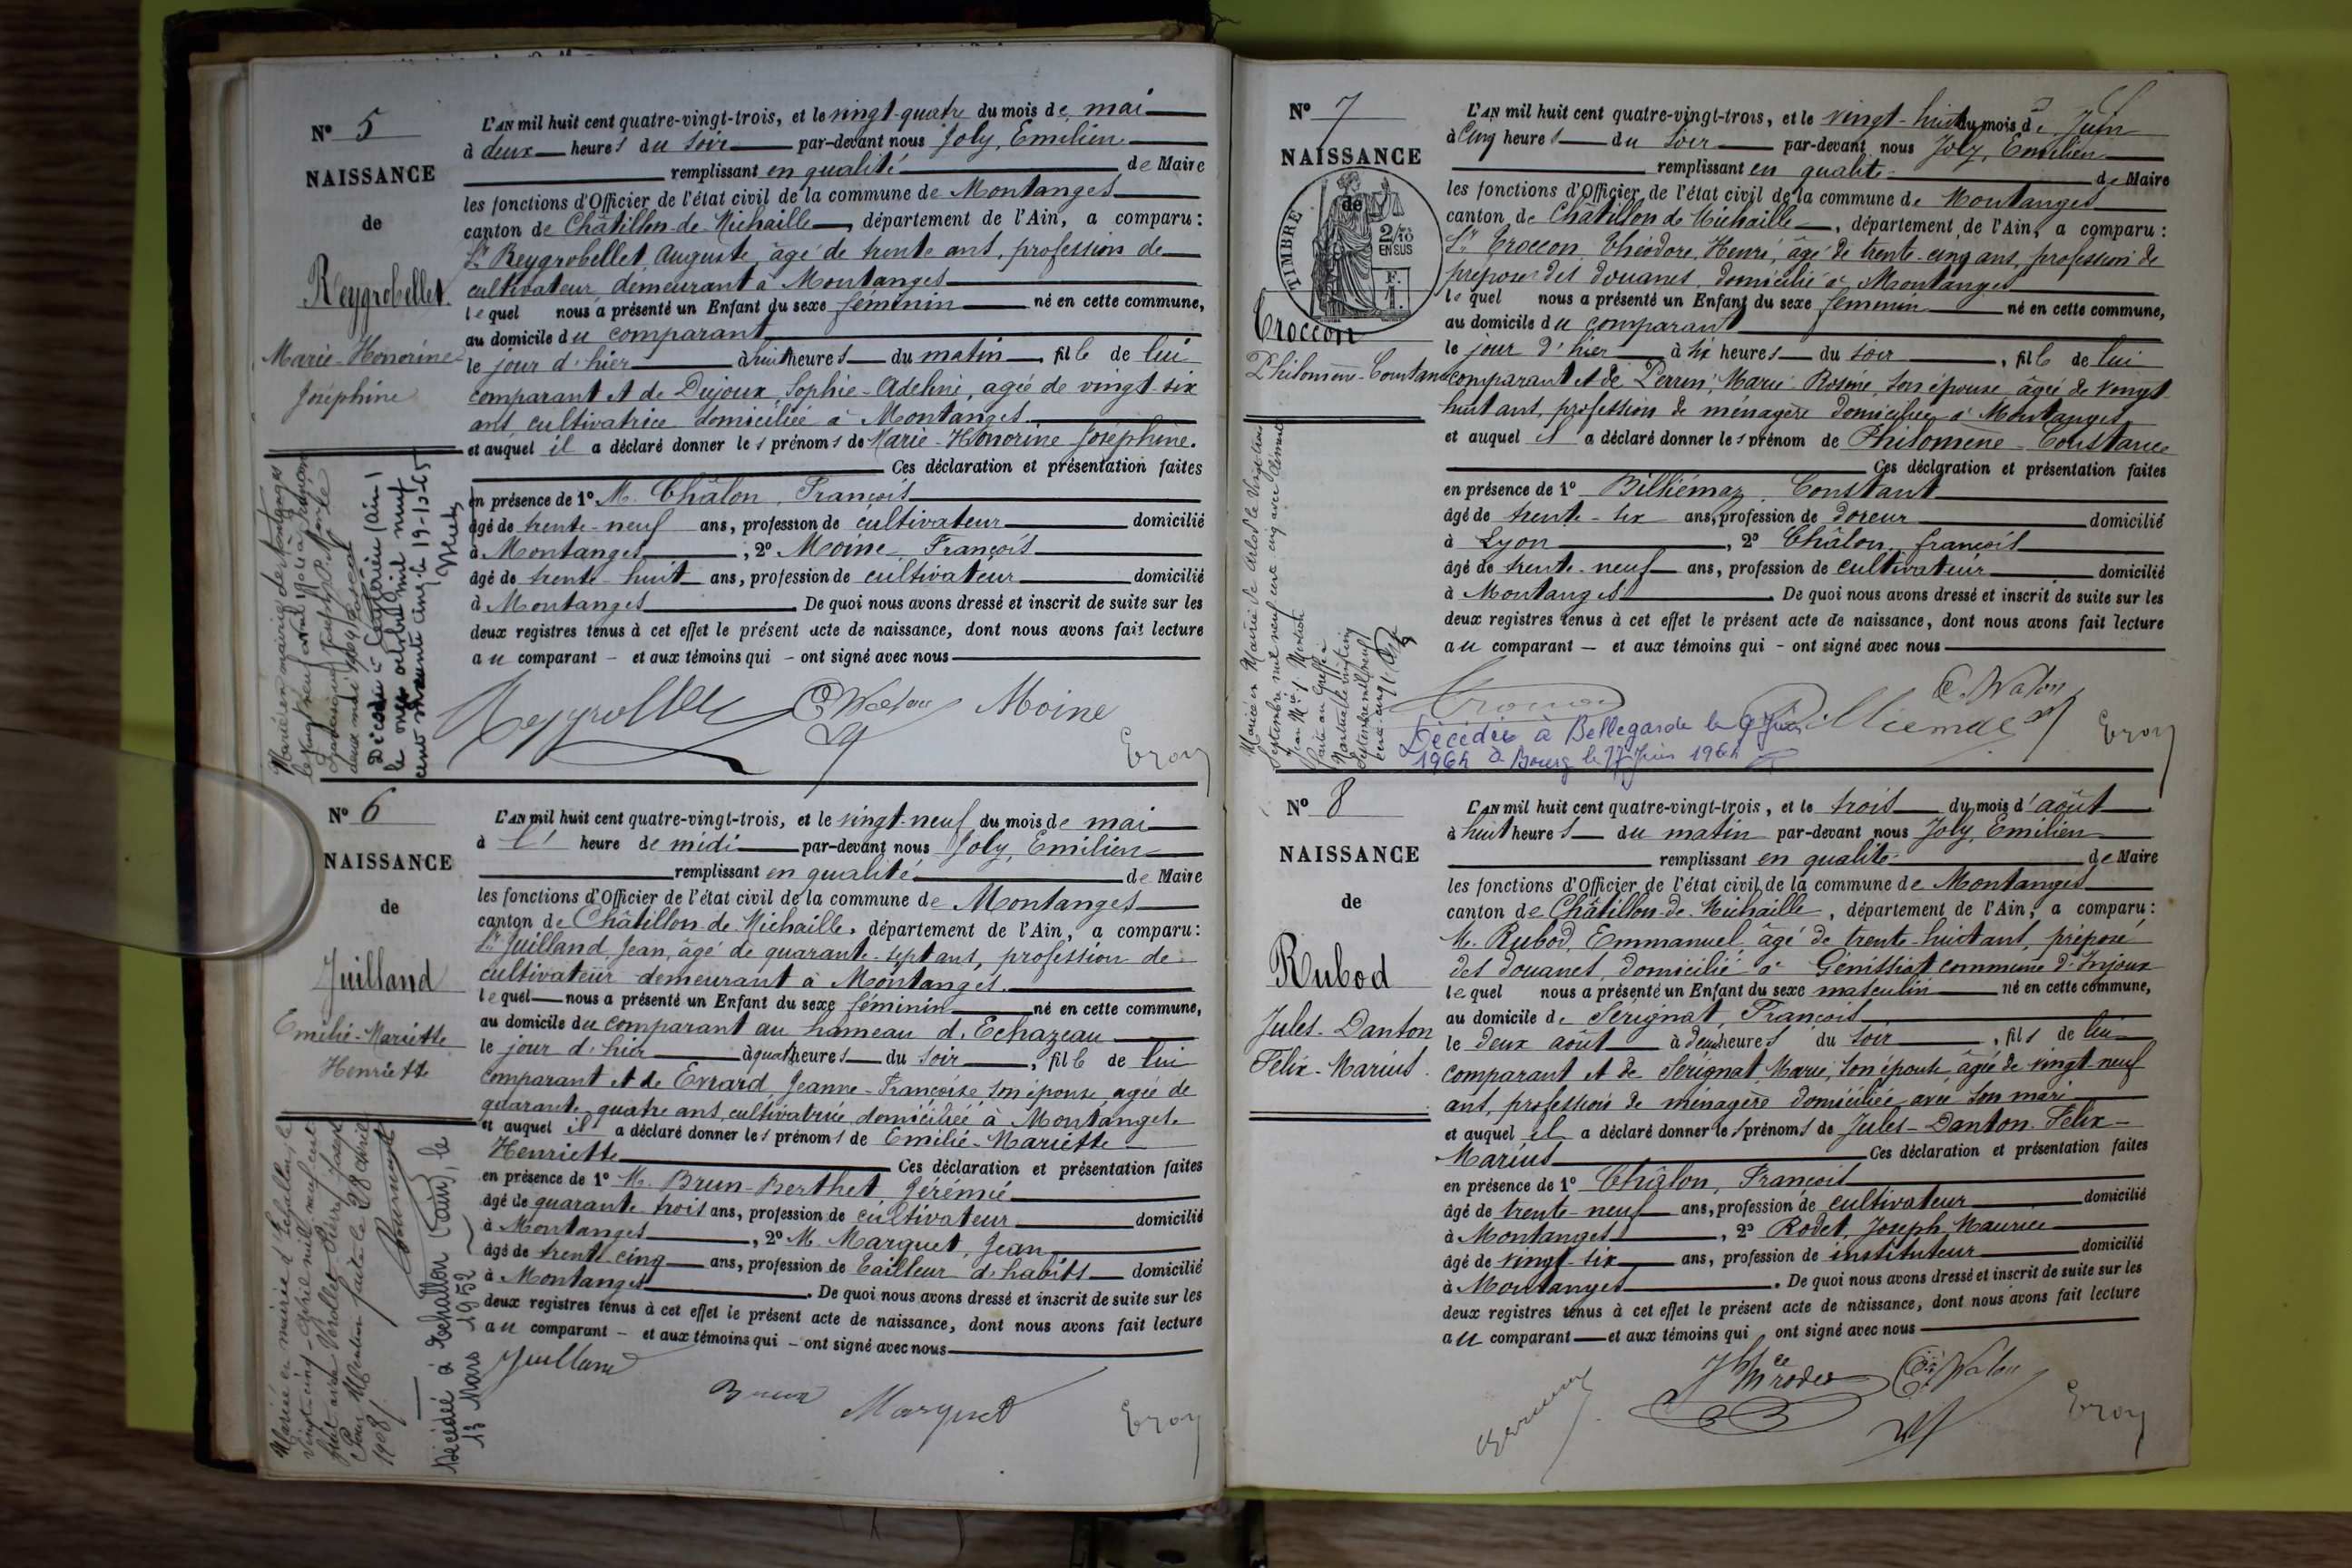 N° 5
NAISSANCE
de
Reygrobellet
Marie-Honorine
Joséphine
L'AN mil huit cent quatre-vingt-trois, et le vingt-quatre du mois de mai
à deux heures du soir par-devant nous Joly, Emilien
remplissant en qualité de Maire
les fonctions d'Officier de l'état civil de la commune de Montanges
canton de Châtillon-de-Michaille, département de l'Ain, a comparu :
Sr Reygrobellet Auguste, âgé de trente ans, profession de
cultivateur demeurant à Montanges
lequel nous a présenté un Enfant du sexe féminin né en cette commune,
au domicile du comparant
le jour d'hier à huit heures du matin, fille de lui
comparant et de Dujoux, Sophie-Adeline, agée de vingt-six
ans cultivatrice domiciliée à Montanges
et auquel il a déclaré donner les prénoms de Marie-Honorine-Joséphine.
Ces déclaration et présentation faites
en présence de 1° M. Châlon, François
âgé de trente-neuf ans, profession de cultivateur domicilié
à Montanges, 2° Moine François
âgé de trente-huit ans, profession de cultivateur domicilié
à Montanges. De quoi nous avons dressé et inscrit de suite sur les
deux registres tenus à cet effet le présent acte de naissance, dont nous avons fait lecture
au comparant - et aux témoins qui - ont signé avec nous
Moine
Décédée à
le neuf octobre mil neuf
cent soixante cinq le 19-10-65
N° 6
NAISSANCE
de
Juilland
Emilie-Mariette
Henriette
L'AN mil huit cent quatre-vingt-trois, et le vingt-neuf du mois de mai
à l' heure de midi par-devant nous Joly, Emilien
remplissant en qualité de Maire
les fonctions d'Officier de l'état civil de la commune de Montanges
canton de Châtillon de Michaille, département de l'Ain, a comparu :
Sr Juilland, Jean, âgé de quarante-sept ans, profession de
cultivateur demeurant à Montanges.
lequel nous a présenté un Enfant du sexe féminin né en cette commune,
au domicile du comparant au hameau d'Echazeau
le jour d'hier à quatre heures du soir, fille de lui
comparant et de Evrard Jeanne-Françoise son épouse, agée de
quarante-quatre ans, cultivatrice domiciliée à Montanges.
et auquel il a déclaré donner les prénoms de Emilie-Mariette
Henriette Ces déclaration et présentation faites
en présence de 1° M. Brun-Berthet, Jérémie
âgé de quarante trois ans, profession de cultivateur domicilié
à Montanges, 2° M. Marquet, Jean
âgé de trente-cinq ans, profession de tailleur d'habits domicilié
à Montanges. De quoi nous avons dressé et inscrit de suite sur les
deux registres tenus à cet effet le présent acte de naissance, dont nous avons fait lecture
au comparant - et aux témoins qui - ont signé avec nous
Juilland
Brun Marquet
Mariée en mairie d'Echallon, le
vingt-cinq avril mil neuf cent
huit avec
Pour Mention faite le 28 avril
1908
Décédée à Echallon (Ain), le
13 Mars 1952
N° 7
NAISSANCE
de
TIMBRE
2/10
EN SUS
F.
1.
Troccon
Philomène-Constance
L'AN mil huit cent quatre-vingt-trois, et le vingt-huit du mois de Juin
à cinq heures du soir par-devant nous Joly, Emilien
remplissant en qualité de Maire
les fonctions d'Officier de l'état civil de la commune de Montanges
canton de Châtillon de Michaille, département de l'Ain, a comparu :
Sr Troccon, Théodore, Henri, âgé de trente-cinq ans, profession de
préposé des douanes, domicilié à Montanges
lequel nous a présenté un Enfant du sexe féminin né en cette commune,
au domicile du comparant
le jour d'hier à six heures du soir, fille de lui
comparant et de Perrin, Marie-Rosine, son épouse âgée de vingt
huit ans, profession de ménagère domiciliée à Montanges
et auquel il a déclaré donner les prénom de Philomène-Constance
Ces déclaration et présentation faites
en présence de 1° Billiémaz, Constant
âgé de trente-six ans, profession de doreur domicilié
à Lyon, 2° Châlon, françois
âgé de trente-neuf ans, profession de cultivateur domicilié
à Montanges. De quoi nous avons dressé et inscrit de suite sur les
deux registres tenus à cet effet le présent acte de naissance, dont nous avons fait lecture
au comparant - et aux témoins qui - ont signé avec nous
Décédée à Bellegarde le 9 Juin
1964 à Bourg le 17 Juin 1964
N° 8
NAISSANCE
de
Rubod
Jules-Danton
Félix-Marius
L'AN mil huit cent quatre-vingt-trois, et le trois du mois d'août
à huit heures du matin par-devant nous Joly, Emilien
remplissant en qualité de Maire
les fonctions d'Officier de l'état civil de la commune de Montanges
canton de Châtillon-de-Michaille, département de l'Ain, a comparu :
M. Rubod, Emmanuel, âgé de trente-huit ans, préposé
des douanes, domicilié à Génissiat commune d'Injoux
lequel nous a présenté un Enfant du sexe masculin né en cette commune,
au domicile de Sérignat, François
le deux août à deux heures du soir, fils de lui
comparant et de Sérignat, Marie, son épouse âgée de vingt-neuf
ans, profession de ménagère domiciliée avec son mari
et auquel il a déclaré donner les prénoms de Jules-Danton-Félix-
Marius Ces déclaration et présentation faites
en présence de 1° Châlon, François
âgé de trente-neuf ans, profession de cultivateur domicilié
à Montanges, 2° Rodet, Joseph-Maurice
âgé de vingt-six ans, profession de instituteur domicilié
à Montanges. De quoi nous avons dressé et inscrit de suite sur les
deux registres tenus à cet effet le présent acte de naissance, dont nous avons fait lecture
au comparant et aux témoins qui ont signé avec nous